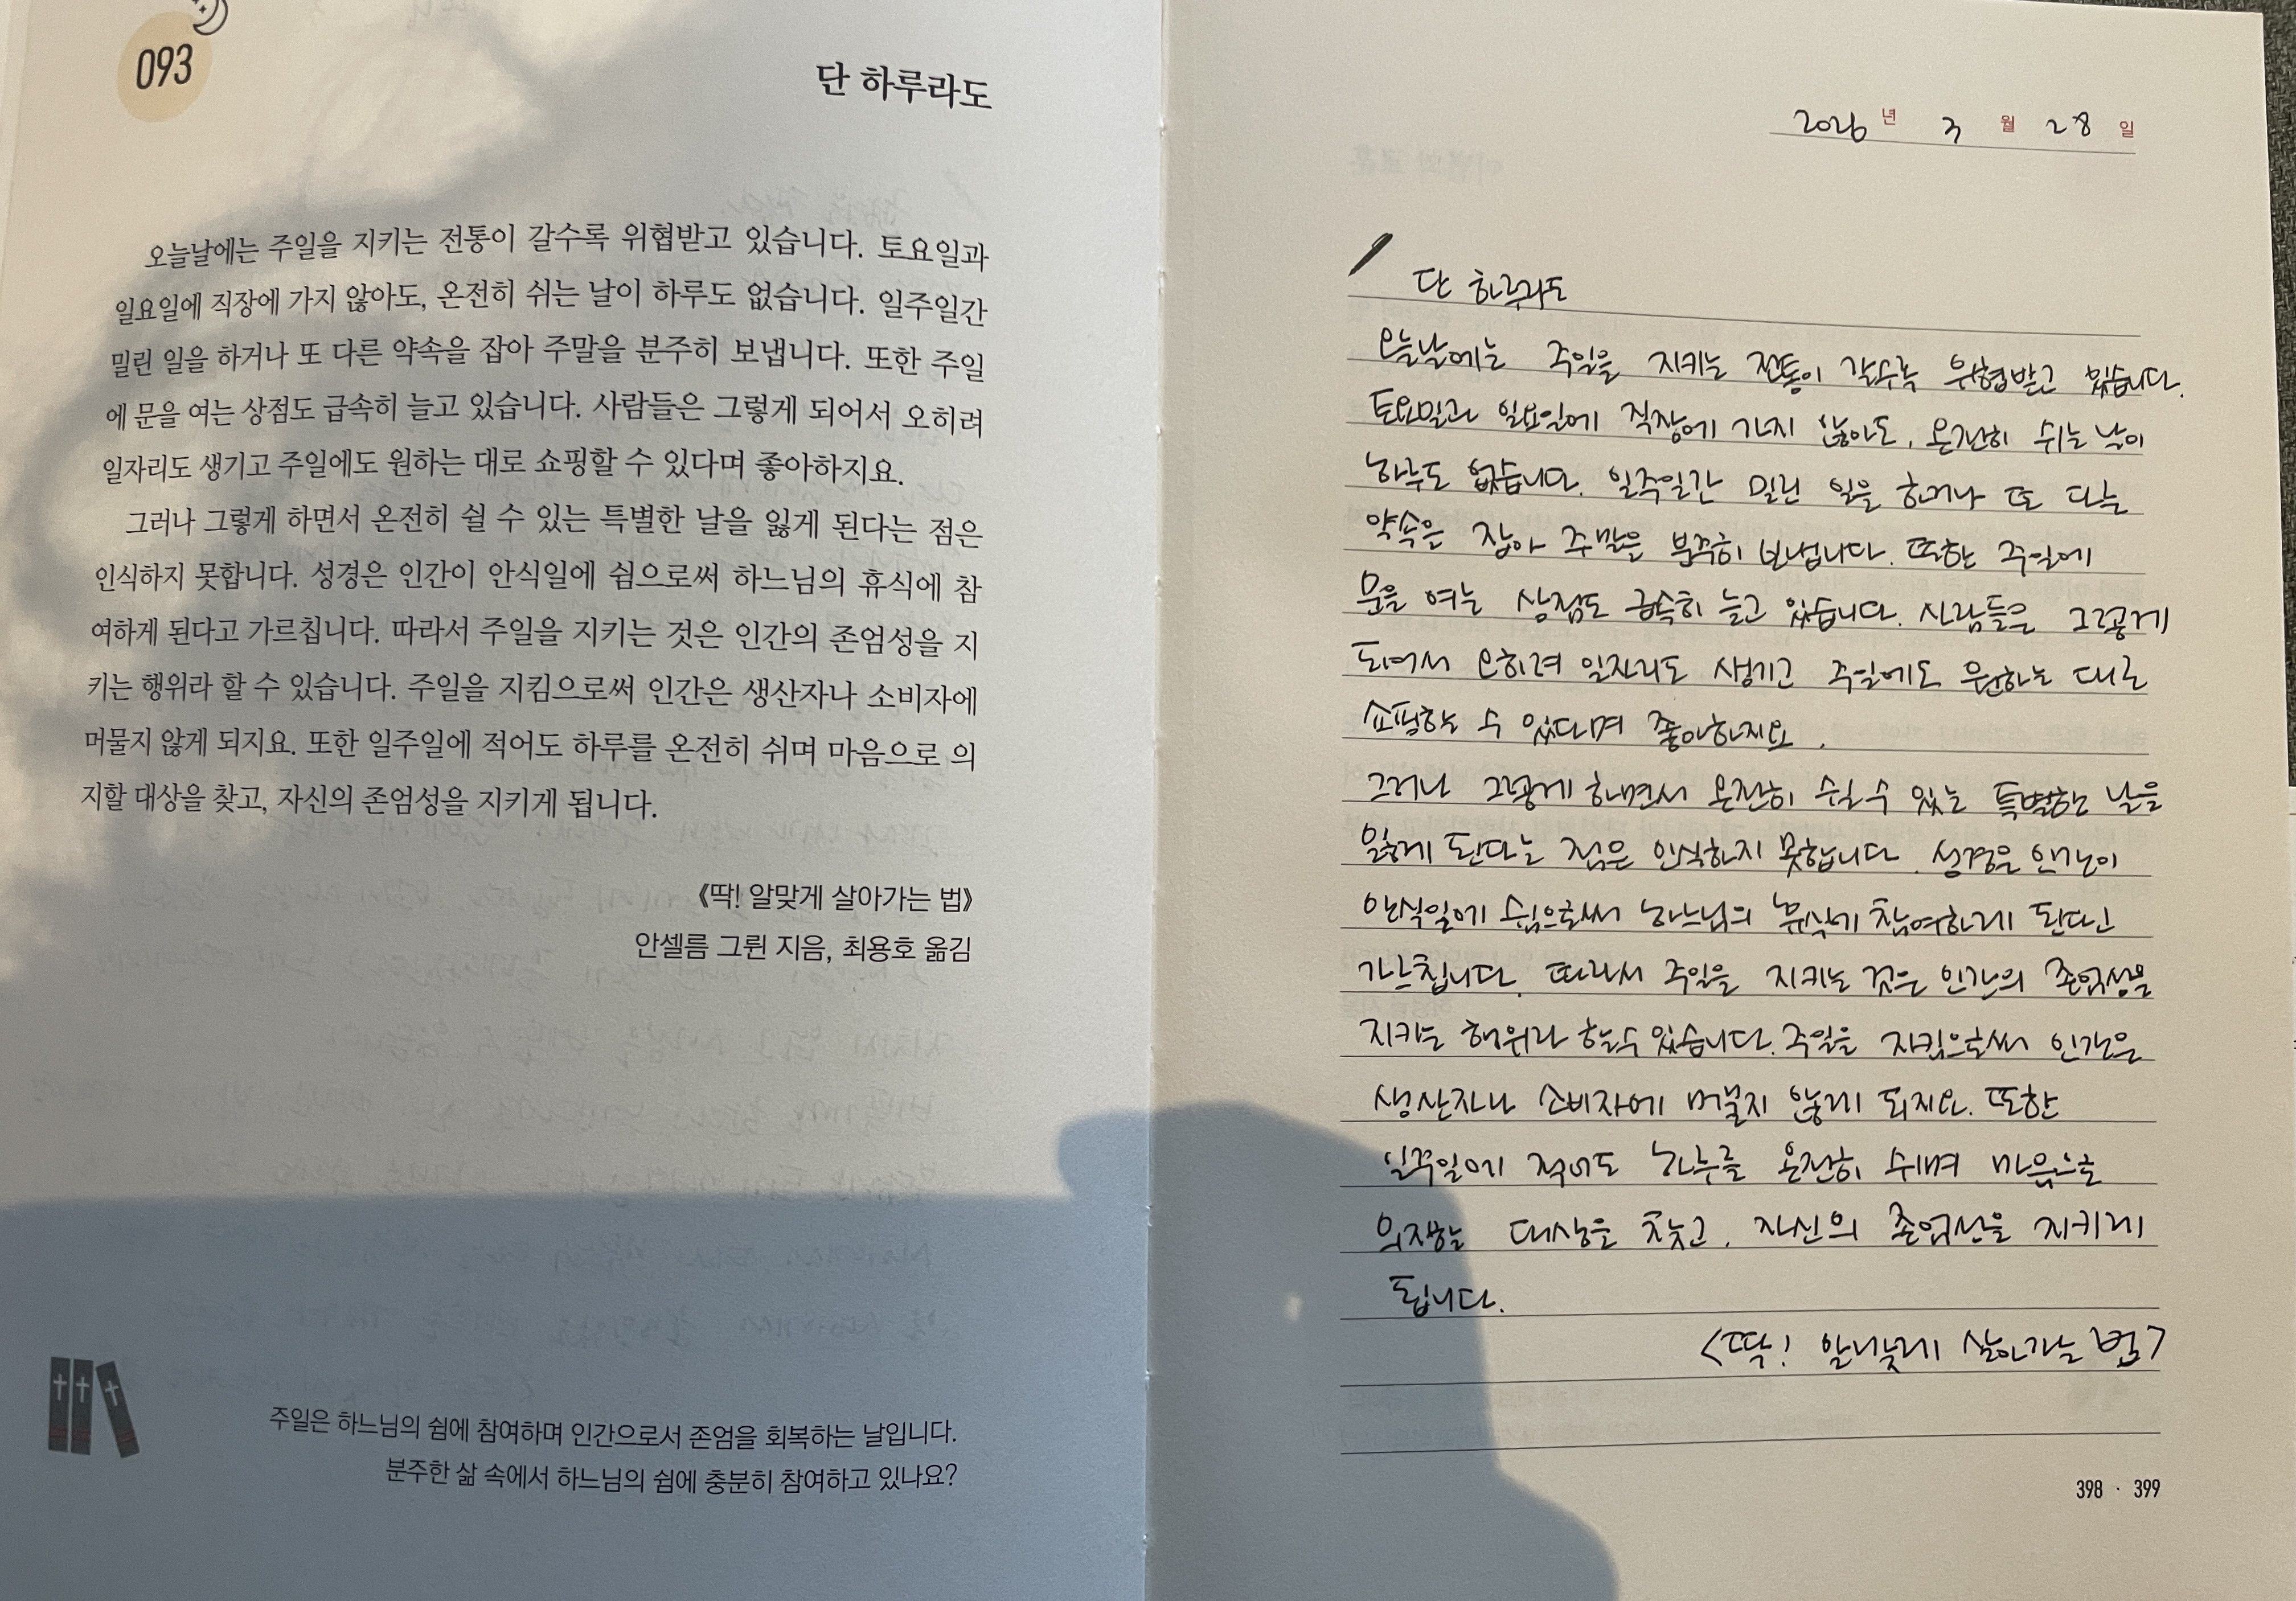 093
단 하루라도
오늘날에는 주일을 지키는 전통이 갈수록 위협받고 있습니다. 토요일과
일요일에 직장에 가지 않아도, 온전히 쉬는 날이 하루도 없습니다. 일주일간
밀린 일을 하거나 또 다른 약속을 잡아 주말을 분주히 보냅니다. 또한 주일
에 문을 여는 상점도 급속히 늘고 있습니다. 사람들은 그렇게 되어서 오히려
일자리도 생기고 주일에도 원하는 대로 쇼핑할 수 있다며 좋아하지요.
그러나 그렇게 하면서 온전히 쉴 수 있는 특별한 날을 잃게 된다는 점은
인식하지 못합니다. 성경은 인간이 안식일에 쉼으로써 하느님의 휴식에 참
여하게 된다고 가르칩니다. 따라서 주일을 지키는 것은 인간의 존엄성을 지
키는 행위라 할 수 있습니다. 주일을 지킴으로써 인간은 생산자나 소비자에
머물지 않게 되지요. 또한 일주일에 적어도 하루를 온전히 쉬며 마음으로 의
지할 대상을 찾고, 자신의 존엄성을 지키게 됩니다.
《딱! 알맞게 살아가는 법》
안셀름 그륀 지음, 최용호 옮김
주일은 하느님의 쉼에 참여하며 인간으로서 존엄을 회복하는 날입니다.
분주한 삶 속에서 하느님의 쉼에 충분히 참여하고 있나요?
2026 년 3 월 28 일
단 하루라도
오늘날에는 주일을 지키는 전통이 갈수록 위협받고 있습니다.
토요일과 일요일에 직장에 가지 않아도, 온전히 쉬는 날이
하루도 없습니다. 일주일간 밀린 일을 하거나 또 다른
약속을 잡아 주말을 분주히 보냅니다. 또한 주일에
문을 여는 상점도 급속히 늘고 있습니다. 사람들은 그렇게
되어서 오히려 일자리도 생기고 주일에도 원하는 대로
쇼핑할 수 있다며 좋아하지요.
그러나 그렇게 하면서 온전히 쉴 수 있는 특별한 날을
잃게 된다는 점은 인식하지 못합니다. 성경은 인간이
안식일에 쉼으로써 하느님의 휴식에 참여하게 된다고
가르칩니다. 따라서 주일을 지키는 것은 인간의 존엄성을
지키는 행위라 할 수 있습니다. 주일을 지킴으로써 인간은
생산자나 소비자에 머물지 않게 되지요. 또한
일주일에 적어도 하루를 온전히 쉬며 마음으로
의지할 대상을 찾고, 자신의 존엄성을 지키게
됩니다.
<딱! 알맞게 살아가는 법>
398 · 399